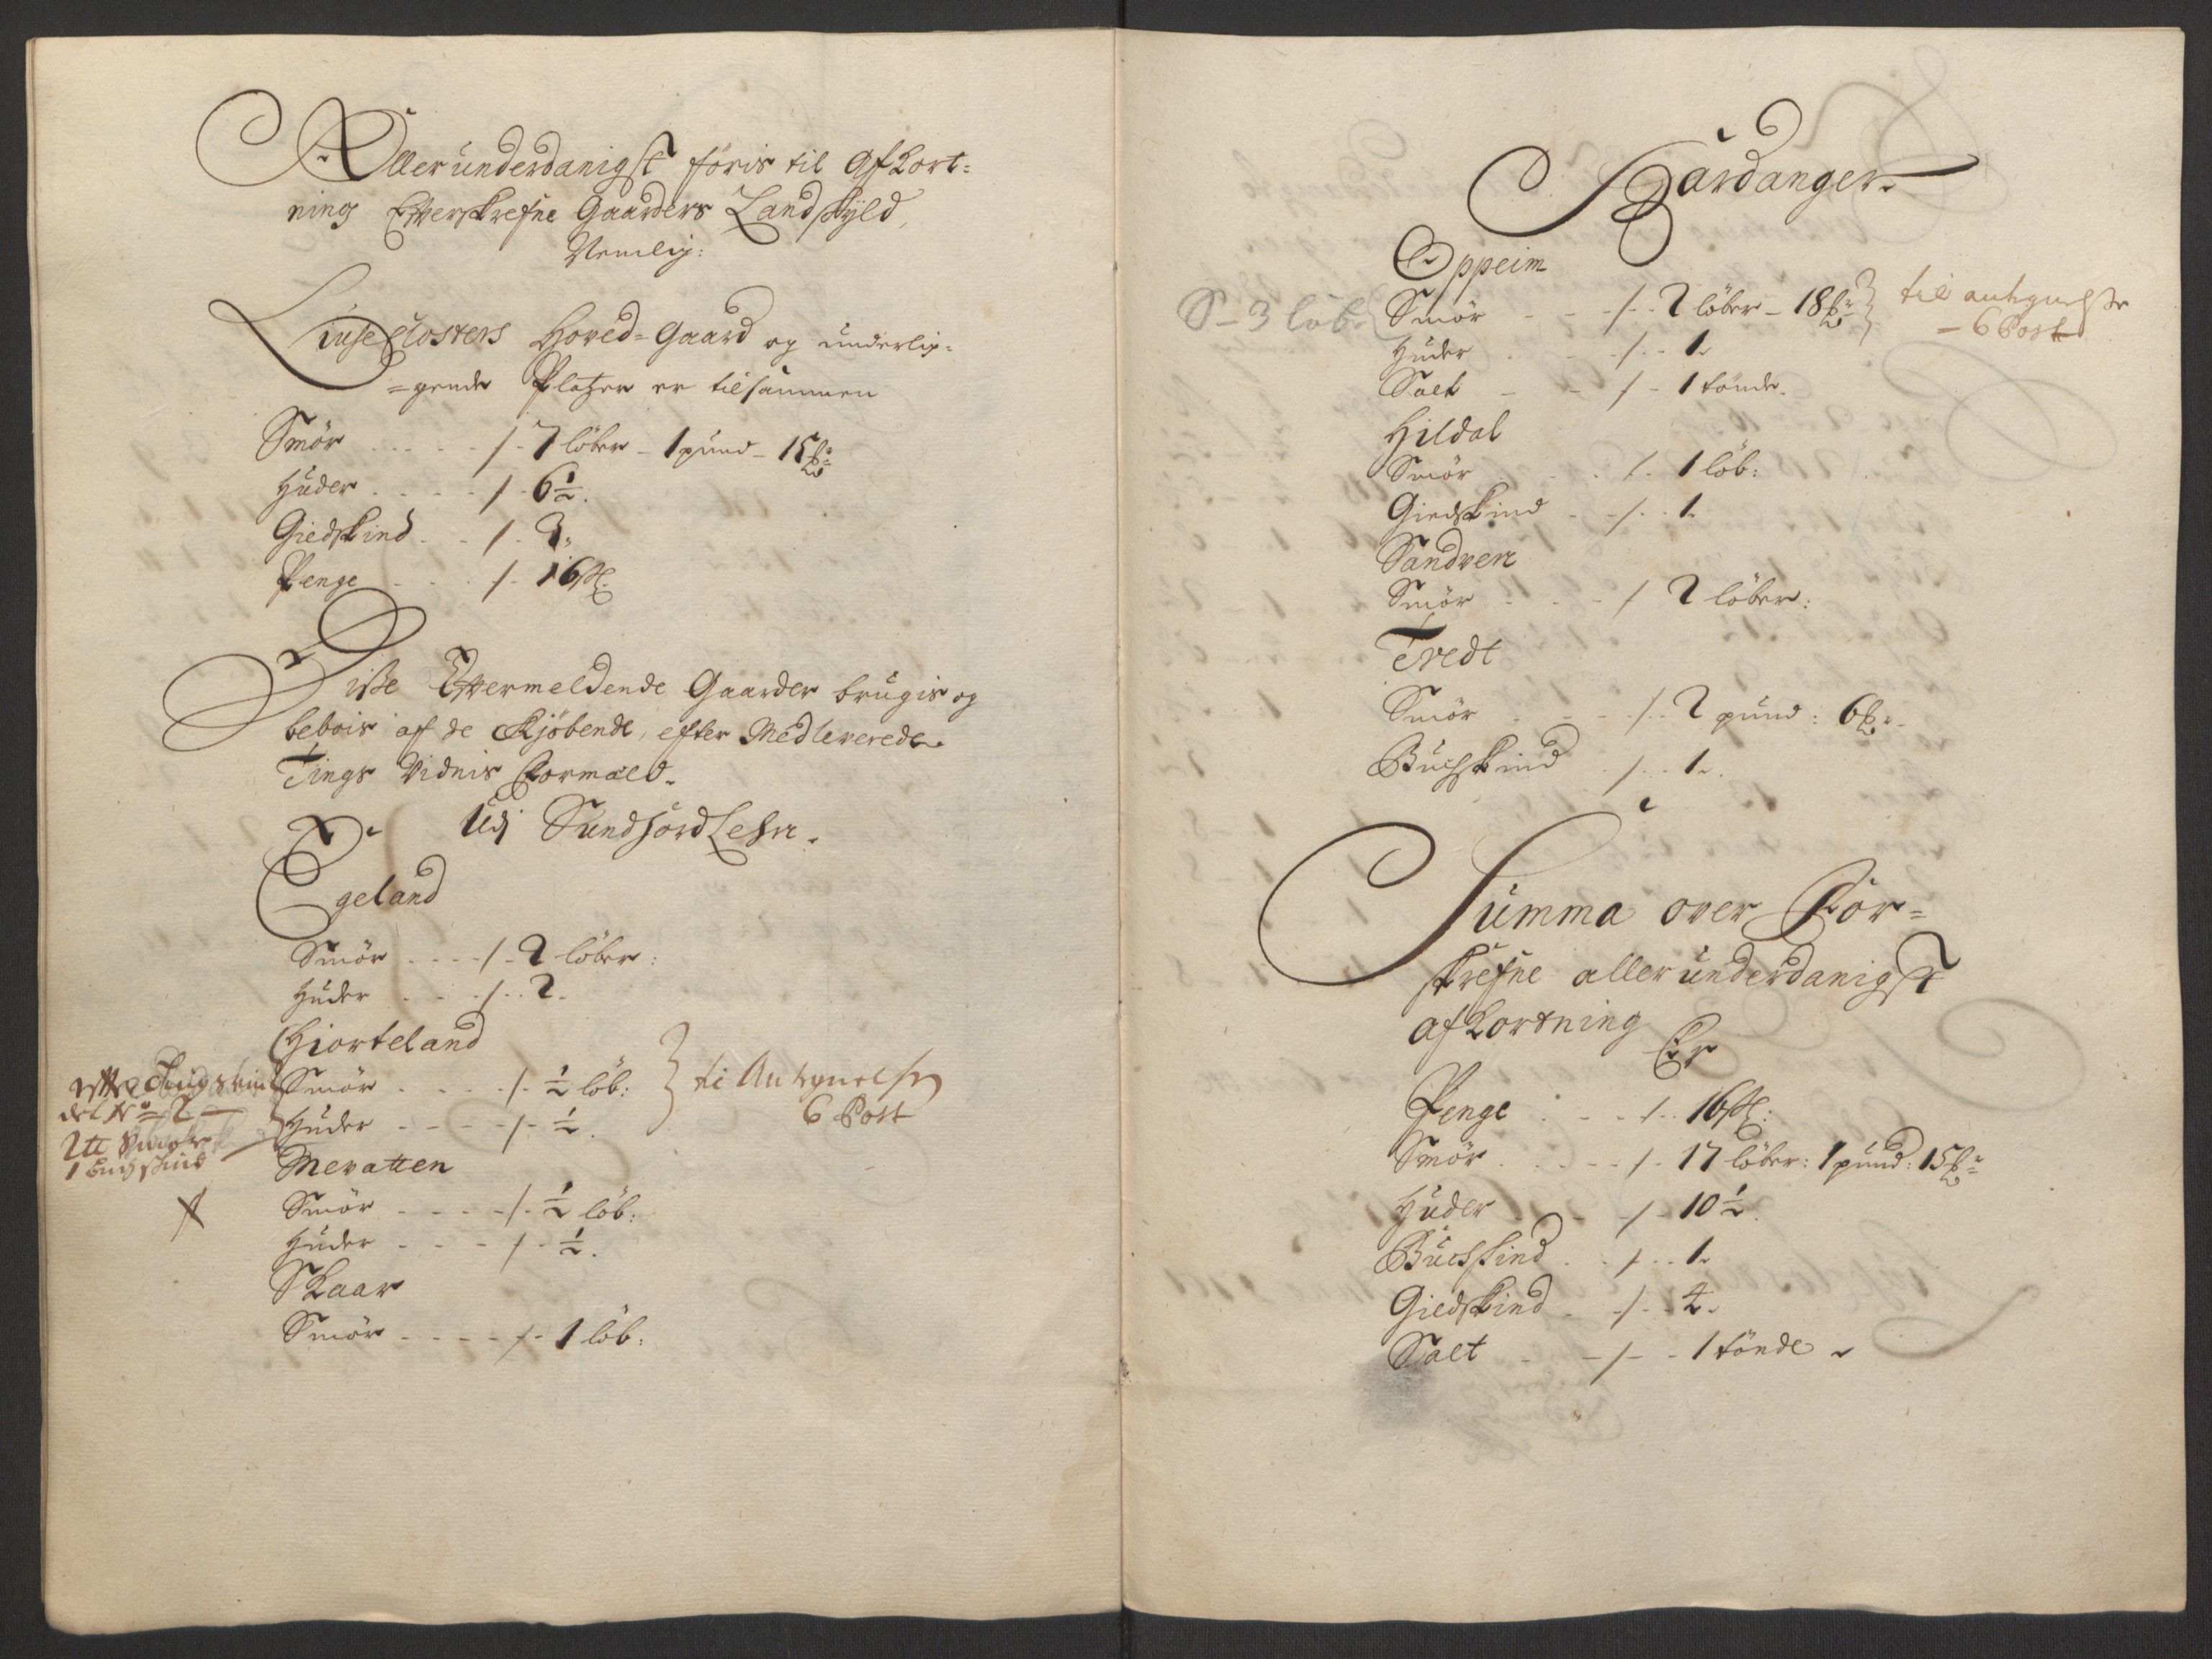 Allerunderdanigst föris til Afkort-
ning Efterskrefne Gaarders Landskÿld,
Nemlig:
Liuseclosters Hoved-Gaard og underlig-
-gende Platzer er tilsammen
Smör - 7 löber - 1 pund - 15 ℔
Huder - 6½.
Giedskind - 3.
Penge - 16 ß.
Diße Eftermeldende Gaarder brugis og
bebois af de Skjöbende, efter Medleverede
Tings Vidnis Formæld.
Udj Sundhord Lehn.
Egeland
Smör - 2 löber:
Huder - 2.
Hiorteland
Smör - ½ löb: til Antegnelse
Huder - ½. 6 Post
efter Tingsvid
det No 2
2 ℔ Smör
1 buchskind
Mevatten
Smör - ½ löb:
Huder - ½.
Skaar
Smör - 1 löb:
Hardanger
Oppeim
S - 3 löb. Smör - 2 löber - 18 ℔ til antegnelse
- 6 Post
Huder - 1.
Salt - 1 tönde.
Hildal
Smör - 1 löb:
Giedskind - 1.
Sandven
Smör - 2 löber:
Tvedt
Smör - 2 pund: 6 ℔
Buchskind - 1.
Summa over For-
skrefne allerunderdanigst
afkortning Er
Penge - 16 ß:
Smör - 17 löber: 1 pund: 15 ℔
Huder - 10½.
Buchskind - 1.
Giedskind - 4.
Salt - 1 tönde